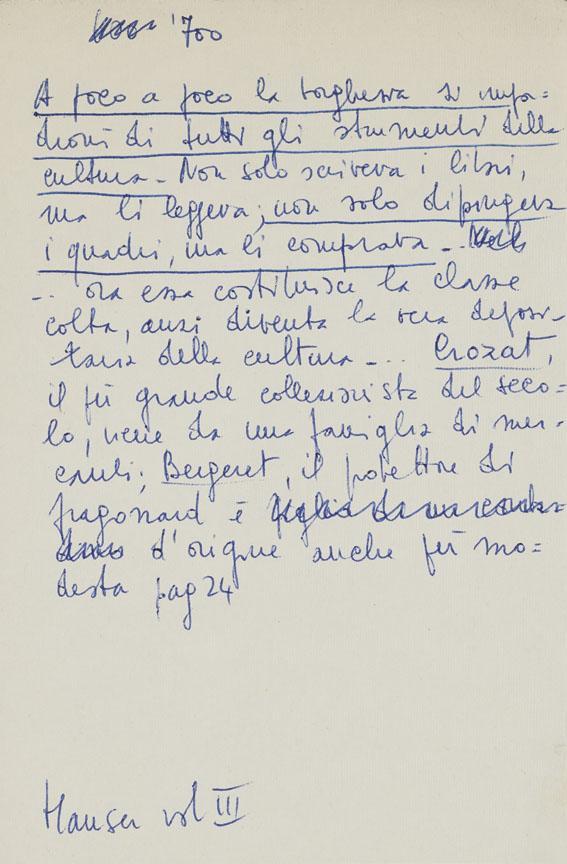 '700
A poco a poco la borghesia si impa=
dronì di tutti gli strumenti della
cultura - Non solo scriveva i libri,
ma li leggeva; non solo dipingeva
i quadri, ma li comprava - ..
.. ora essa costituisce la classe
colta, anzi diventa la vera deposi-
taria della cultura - ... Crozat,
il più grande collezionista del seco=
lo, viene da una famiglia di mer-
canti; Bergeret, il protettore di
fragonard è
d'origine anche più mo=
desta pag 24
Hauser vol III